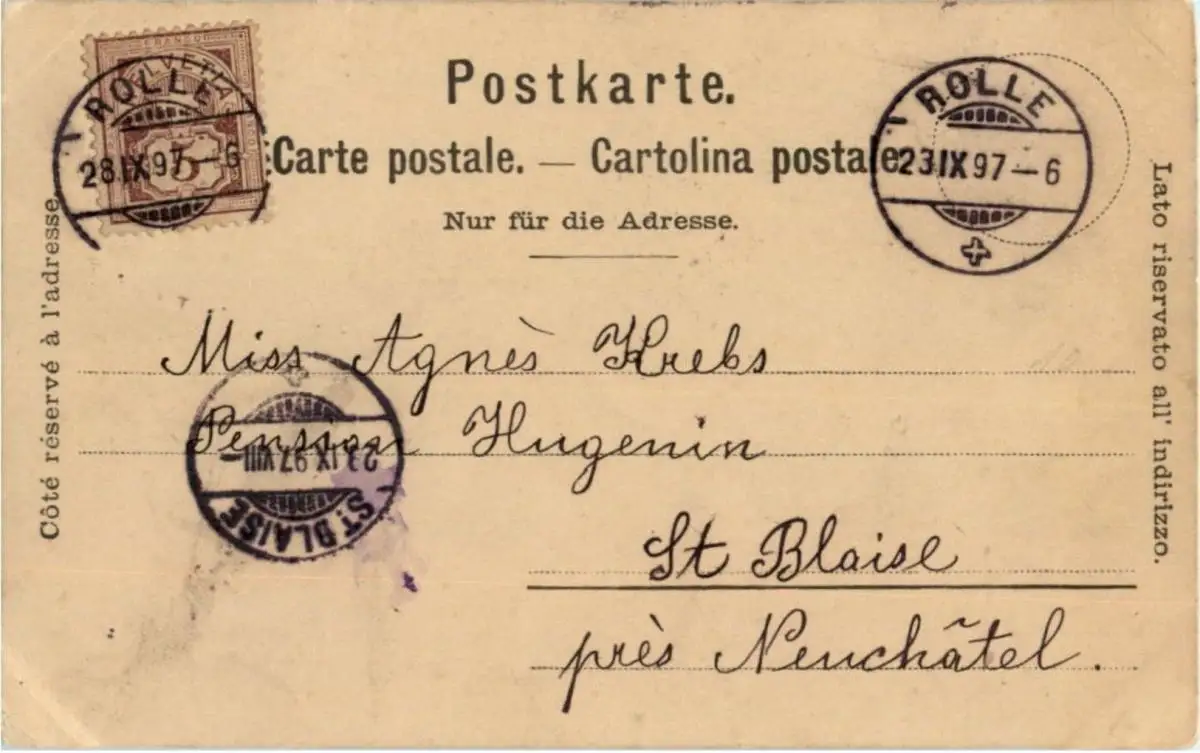 FRANCO
HELVETIA
5
ROLLE
28 IX 97 – 6
Postkarte.
Carte postale. — Cartolina postale.
Nur für die Adresse.
ROLLE
23 IX 97 – 6
Côté réservé à l'adresse.
Lato riservato all' indirizzo.
Miss Agnès Krebs
Pension Hugenin
St Blaise
près Neuchâtel.
ST. BLAISE
23 IX 97 VIII –